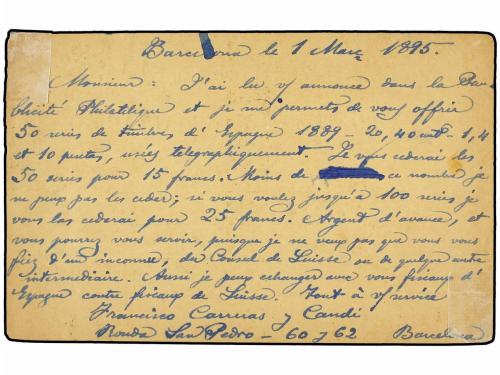 Barcelona le 1 Marz 1895.
Monsieur: J'ai lu v/ annonce dans la Pu-
blicité Philatelique et je me permets de vous offrir
50 series de timbres d'Espagne 1889 - 20, 40 cent - 1, 4
et 10 pesetas, usées telegraphiquement. Je vous cederai les
50 series pour 15 francs. Moins de ce nombre je
ne peux pas les ceder; si vous voulez jusqu'à 100 series je
vous las cederai pour 25 francs. Argent d'avance, et
vous pourrez vous servir, puisque je ne veux pas que vous vous
fiez d'un inconnu, du Consul de Suisse ou de quelque autre
intermediaire. Aussi je peux echanger avec vous fiscaux d'
Espagne contre fiscaux de Suisse. Tout à v/ service
Francisco Carreras y Candi
Ronda San Pedro - 60 y 62 Barcelona